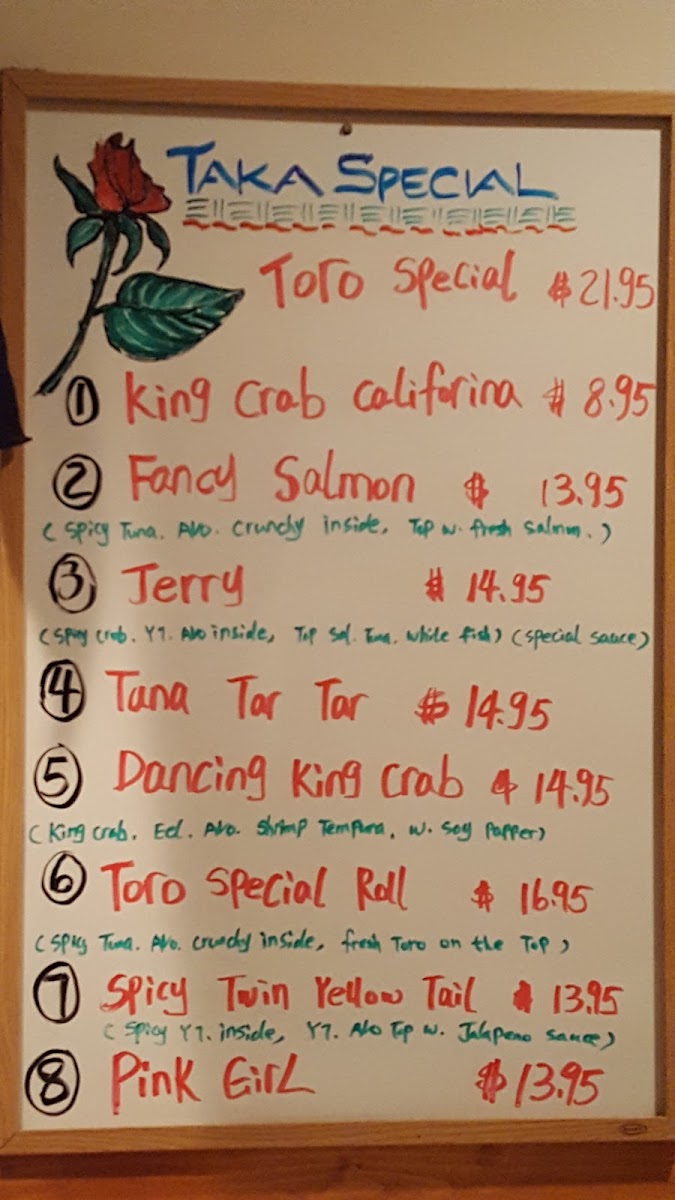 TAKA SPECIAL
Toro Special $21.95
① King Crab Califorina $ 8.95
② Fancy Salmon $ 13.95
( Spicy Tuna. Avo. Crunchy inside, Top w. fresh Salmon. )
③ Jerry $ 14.95
( Spicy Crab. YT. Avo inside, Top Sal. Tuna. White fish) (special sauce)
④ Tuna Tar Tar $ 14.95
⑤ Dancing King Crab $ 14.95
( King Crab. Eel. Avo. Shrimp Tempura. w. Soy Papper)
⑥ Toro Special Roll $ 16.95
( Spicy Tuna. Avo. Crunchy inside, fresh Toro on the Top )
⑦ Spicy Twin Yellow Tail $ 13.95
( Spicy YT. inside, YT. Avo Top w. Jalapeno sauce)
⑧ Pink Girl $13.95